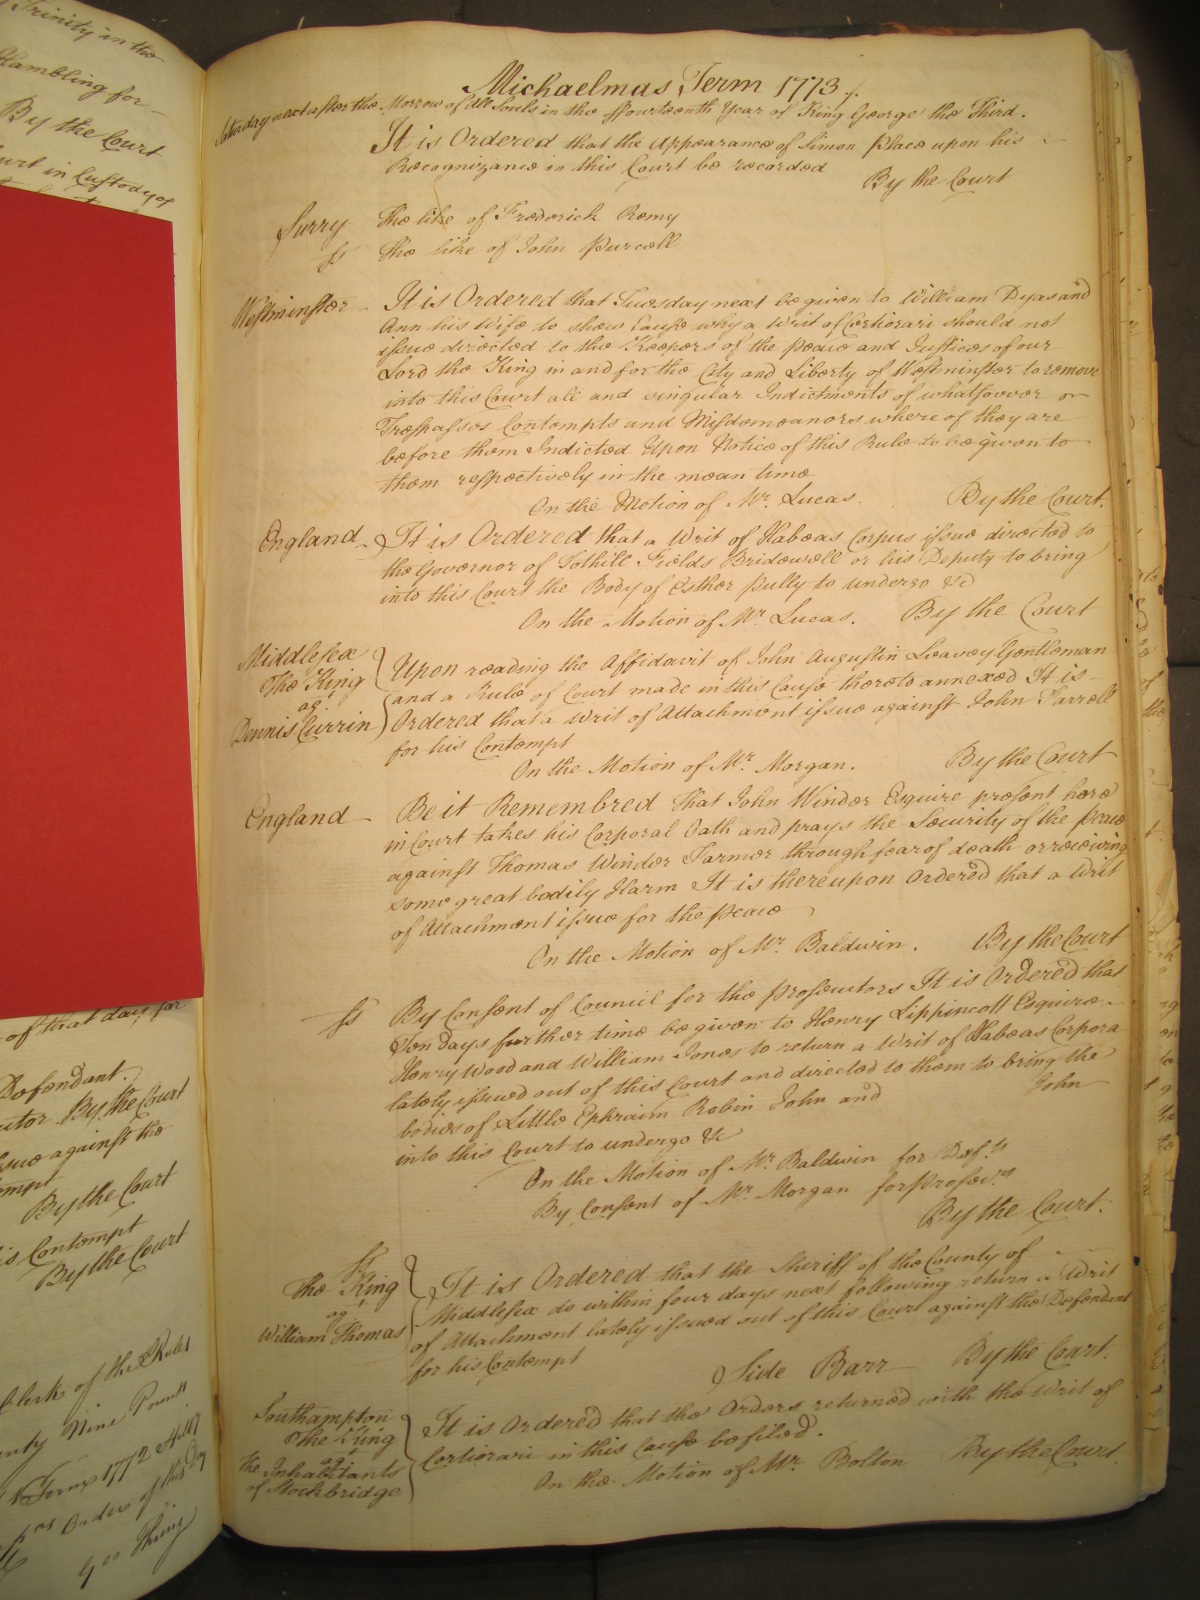 Trinity in the
Hambling for
By the Court
Court in Custody of
of that day for
Defendant.
By the Court
issue against the
By the Court
his Contempt
By the Court
Clerk of the Rules
Nine Pounds
Order of this
Michaelmas Term 1773.
Saturday next after the Morrow of All Souls in the ffourteenth Year of King George the Third.
It is Ordered that the Appearance of Simon Place upon his
Recognizance in this Court be recorded
By the Court
Surry The like of Frederick Remy
ss The like of John Purcell
Westminster It is Ordered that Tuesday next be given to William Dyas and
Ann his Wife to shew Cause why a Writ of Certiorari should not
issue directed to the Keepers of the peace and Justices of our
Lord the King in and for the City and Liberty of Westminster to remove
into this Court all and singular Indictments of whatsoever
Trespasses Contempts and Misdemeanors whereof they are
before them Indicted Upon Notice of this Rule to be given to
them respectively in the mean time
On the Motion of Mr. Lucas. By the Court.
England It is Ordered that a Writ of Habeas Corpus issue directed to
the Governor of Tothill Fields Bridewell or his Deputy to bring
into this Court the Body of Esther Pully to undergo &c
On the Motion of Mr. Lucas. By the Court
Middlesex
The King
agt
Dennis Currin
Upon reading the Affidavit of John Augustin Leavey Gentleman
and a Rule of Court made in this Cause thereto annexed It is
Ordered that a Writ of Attachment issue against John Farrell
for his Contempt
On the Motion of Mr. Morgan. By the Court
England Be it Remembred that John Winder Esquire present here
in Court takes his Corporal Oath and prays the Security of the peace
against Thomas Winder Farmer through fear of death or receiving
some great bodily Harm It is thereupon Ordered that a Writ
of Attachment issue for the peace
On the Motion of Mr. Baldwin. By the Court
ss By Consent of Council for the prosecutors It is Ordered that
Ten days further time be given to Henry Lippincott Esquire
Henry Wood and William Jones to return a Writ of Habeas Corpora
lately issued out of this Court and directed to them to bring the
bodies of Little Ephraim Robin John and John
into this Court to undergo &c
On the Motion of Mr. Baldwin for Defts
By Consent of Mr. Morgan for prosers
By the Court.
ss
The King
agt
William Thomas
It is Ordered that the Sheriff of the County of
Middlesex do within four days next following return a Writ
of Attachment lately issued out of this Court against the Defendant
for his Contempt
Side Barr By the Court.
Southampton
The King
agt
the Inhabitants
of Stockbridge
It is Ordered that the Orders returned with the Writ of
Certiorari in this Cause be filed.
On the Motion of Mr. Bolton By the Court.